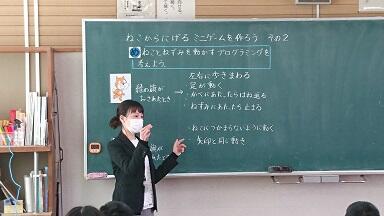 ねこからにげる ミニゲームを作ろう その2
ねことねずみを動かすプログラミングを
考えよう。
緑の旗が
おされたとき
→
・左右に歩きまわる
・足が動く
・かべにあたったらはね返る
・ねずみにあたったら止まる
・ねこにつかまらないように動く
矢印と同じ動き